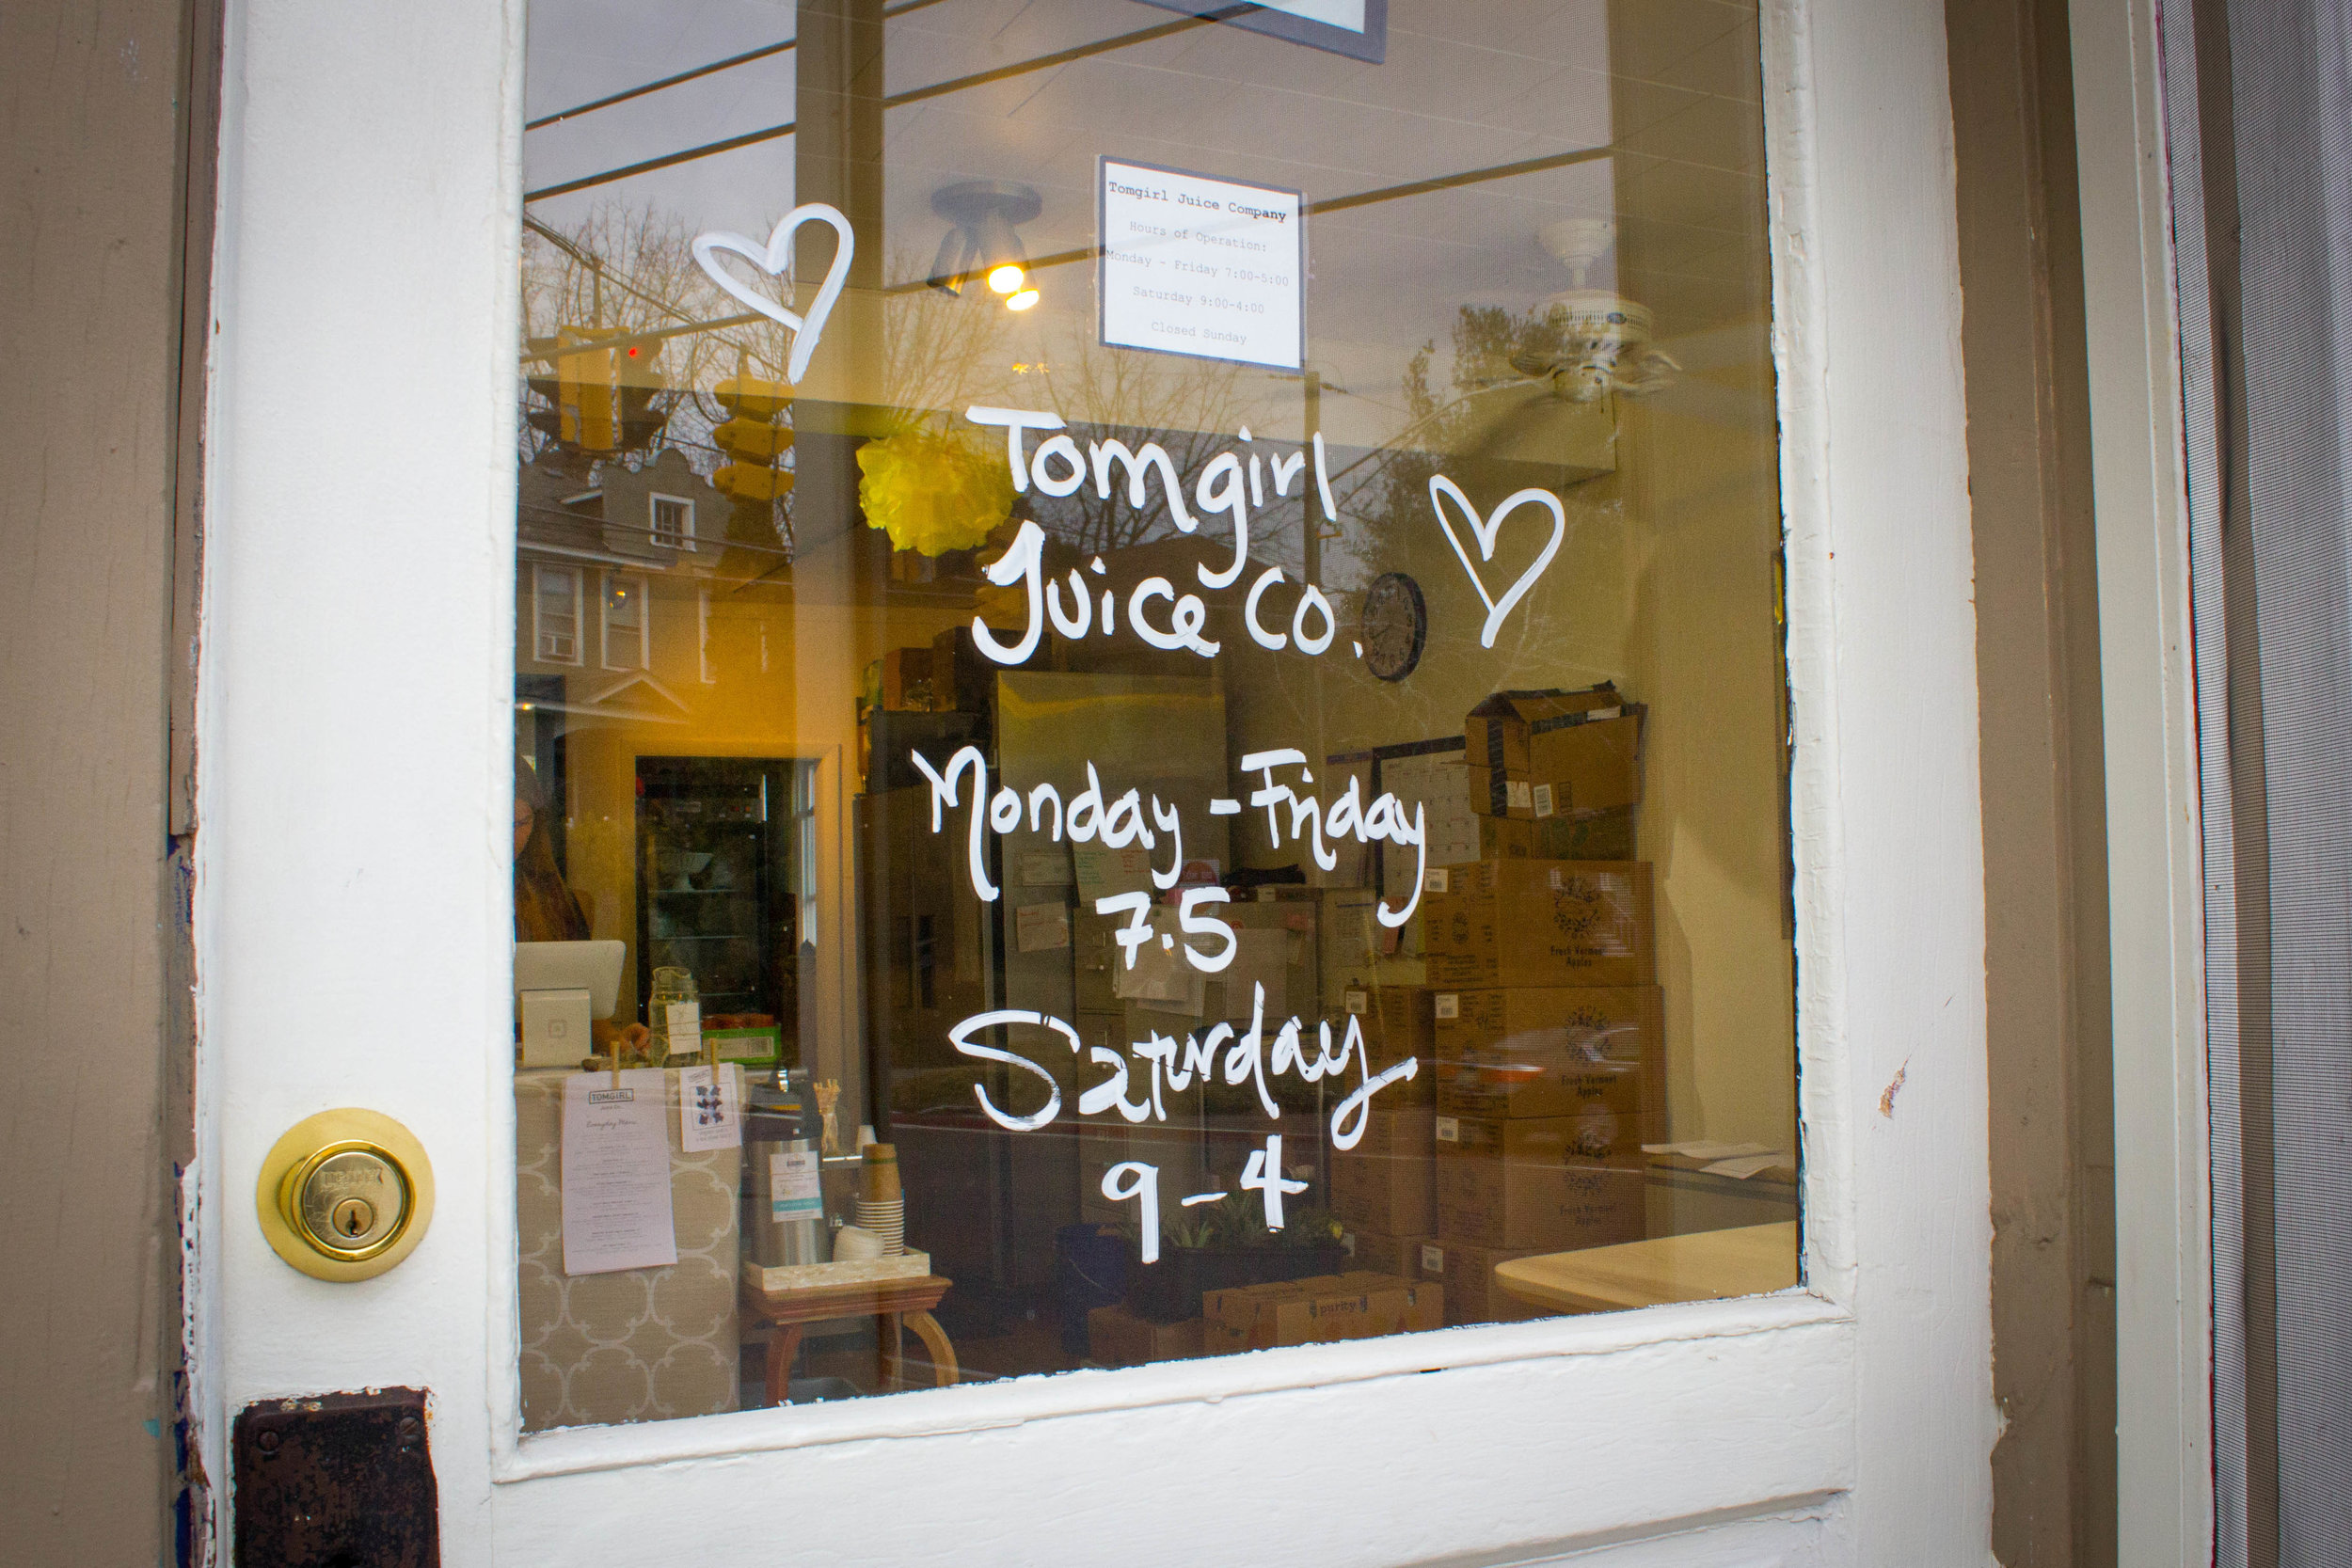 Tomgirl Juice Company
Hours of Operation:
Monday - Friday 7:00-5:00
Saturday 9:00-4:00
Closed Sunday
Tomgirl
Juice Co.
Monday - Friday
7.5
Saturday
9 - 4
TOMGIRL
Everyday Menu
Fresh Vermont
Apples
Fresh Vermont
Apples
Fresh Vermont
Apples
purity